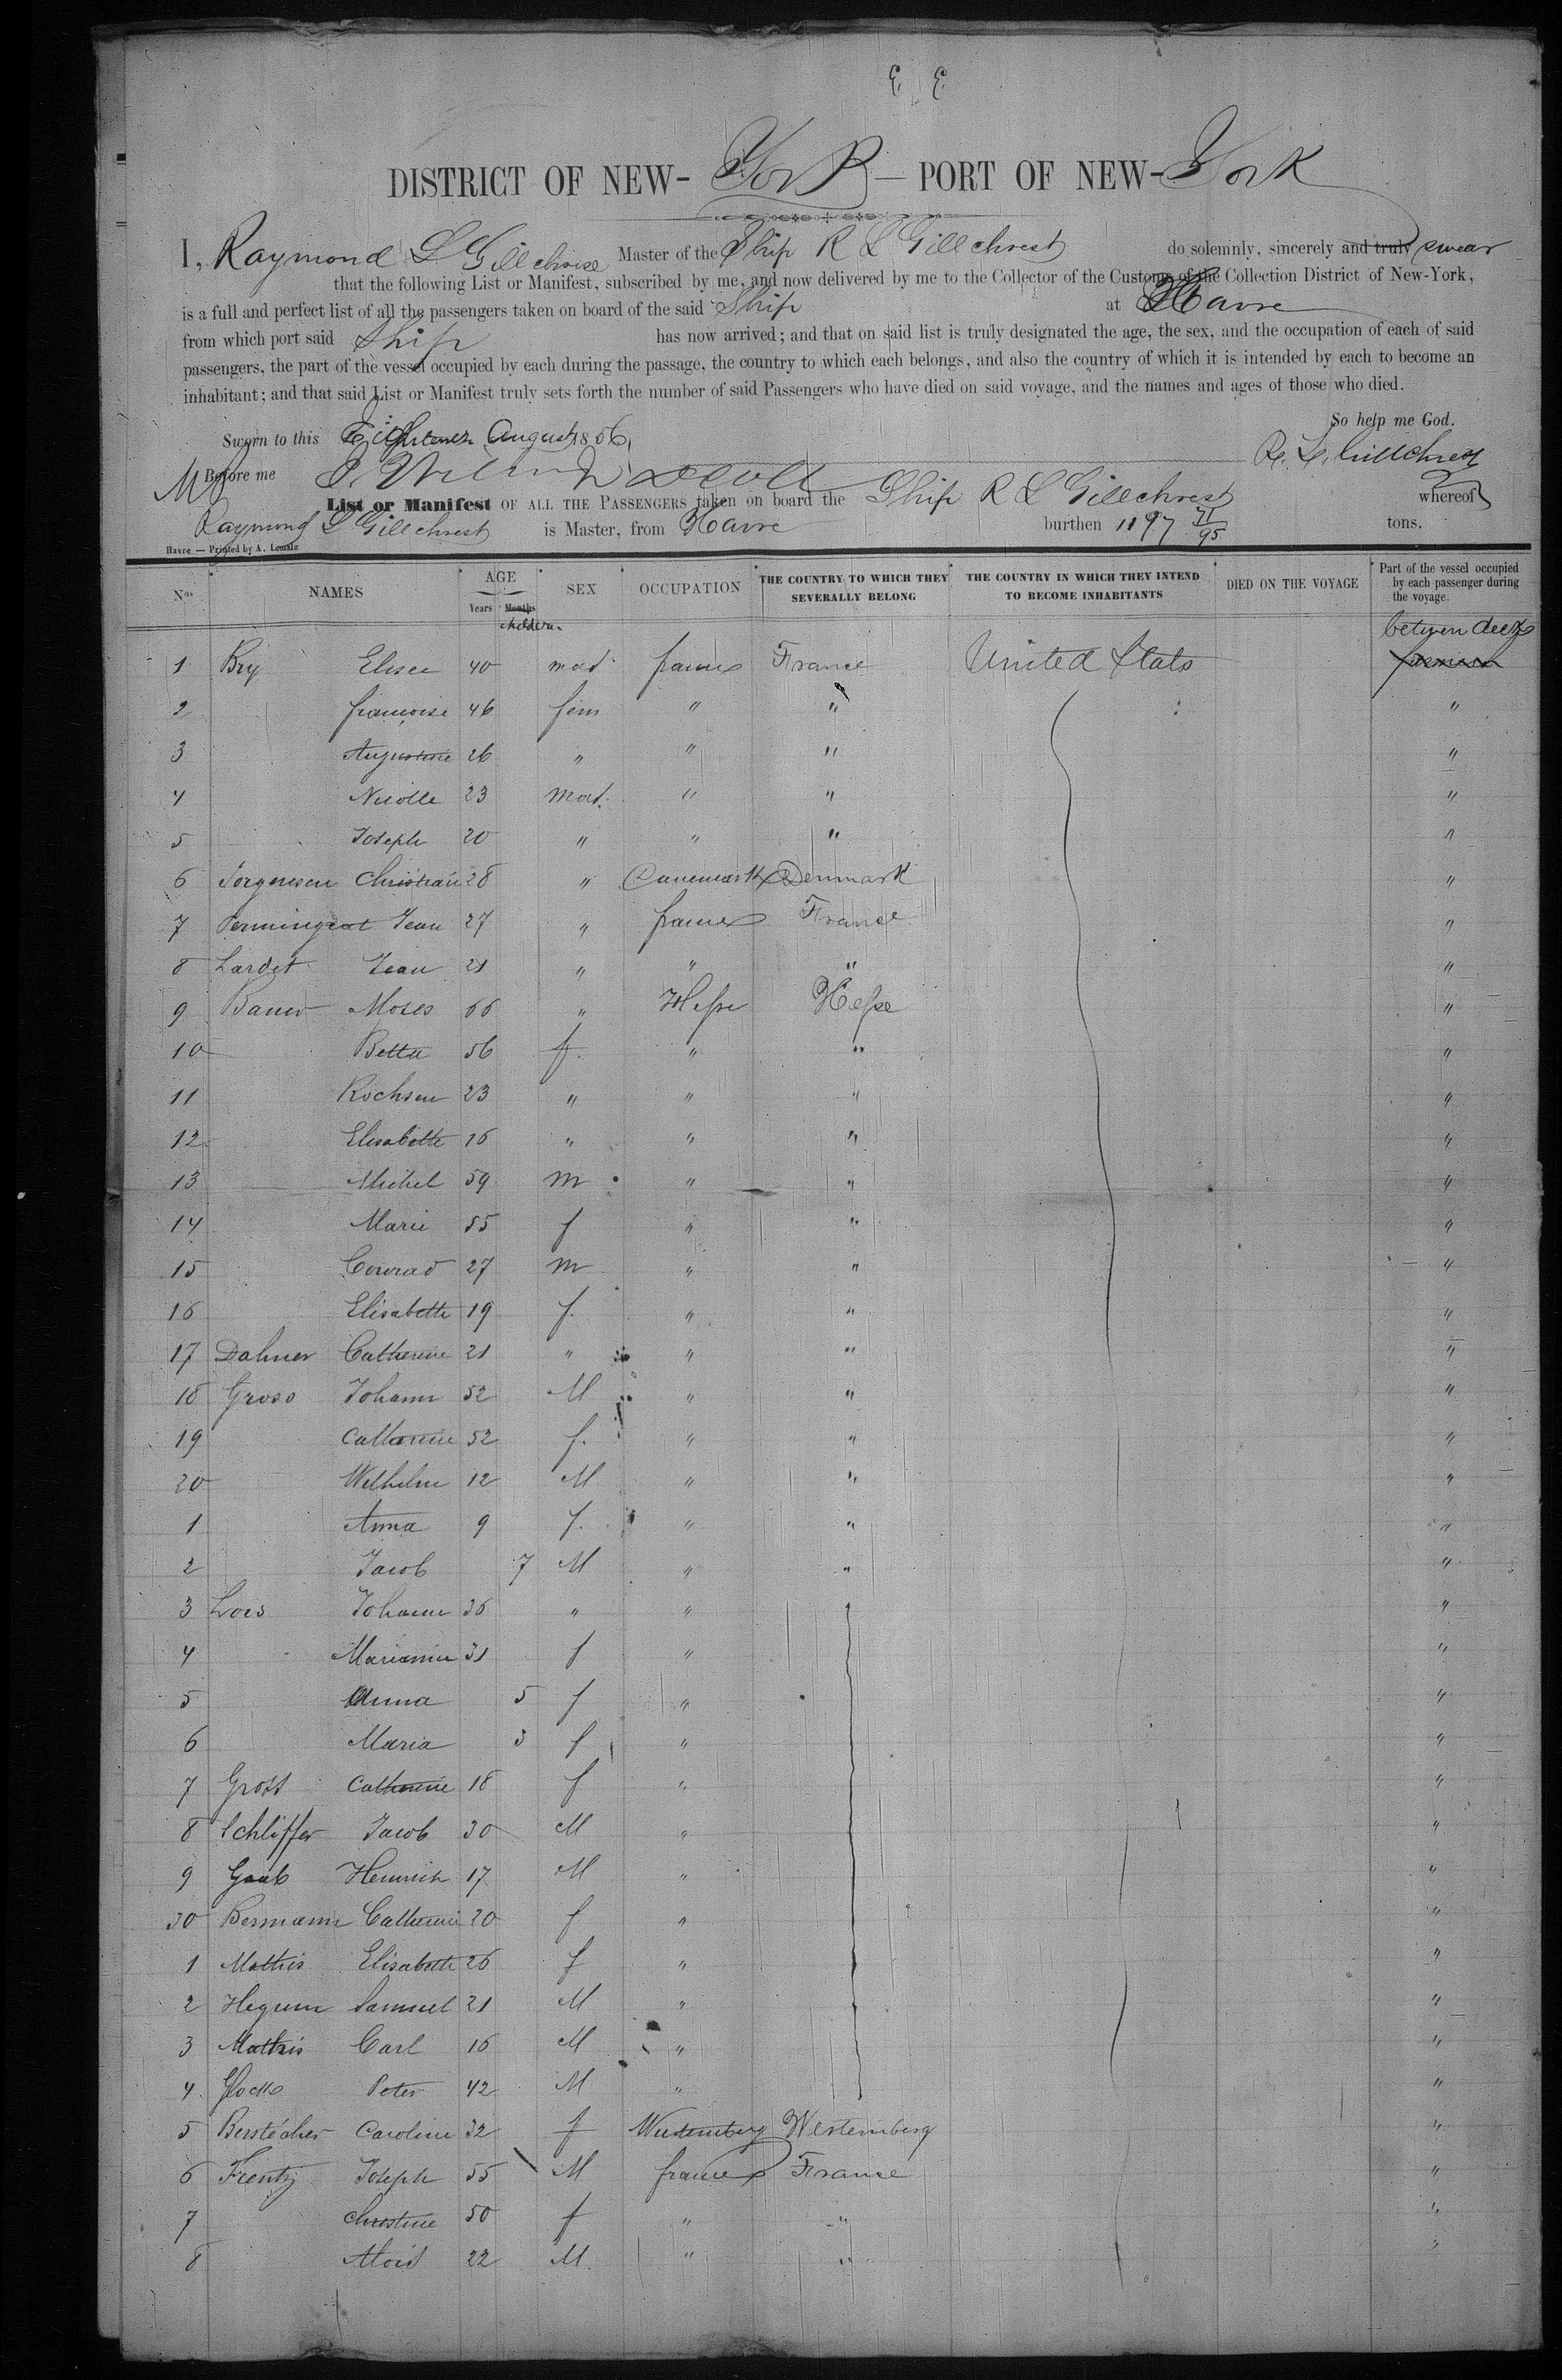 E E
DISTRICT OF NEW- York — PORT OF NEW- York
I, Raymond L Gillchrest Master of the Ship R L Gillchrest do solemnly, sincerely and truly swear
that the following List or Manifest, subscribed by me, and now delivered by me to the Collector of the Customs of the Collection District of New-York,
is a full and perfect list of all the passengers taken on board of the said Ship at Havre
from which port said Ship has now arrived; and that on said list is truly designated the age, the sex, and the occupation of each of said
passengers, the part of the vessel occupied by each during the passage, the country to which each belongs, and also the country of which it is intended by each to become an
inhabitant; and that said List or Manifest truly sets forth the number of said Passengers who have died on said voyage, and the names and ages of those who died.
So help me God.
Sworn to this Eighteen August 1856,
R. L. Gillchrest
Before me
List or Manifest OF ALL THE PASSENGERS taken on board the Ship R L Gillchrest whereof
Raymond L Gillchrest is Master, from Havre burthen 1197 71/95 tons.
Havre — Printed by A. Lemale
Nos NAMES AGE Years Months SEX OCCUPATION THE COUNTRY TO WHICH THEY SEVERALLY BELONG THE COUNTRY IN WHICH THEY INTEND TO BECOME INHABITANTS DIED ON THE VOYAGE Part of the vessel occupied by each passenger during the voyage.
children between decks
1 Bry Elisee 40 France United Stats
2 francoise 46 fem " " "
3 Augustine 26 " " " "
4 Nicolle 23 " " "
5 Joseph 20 " " " "
6 Jorgensen Christian 28 " Denmark "
7 Jean 27 " France "
8 Lardet Jean 21 " " " "
9 Bauer Moses 66 " Hesse Hesse "
10 Betta 56 f. " " "
11 23 " " " "
12 Elisabette 16 " " " "
13 Michel 59 m " " "
14 Marie 55 f " " "
15 Conrad 27 m " " "
16 Elisabette 19 f. " " "
17 Dahmer Catherine 21 " " " "
18 Gross Johann 52 M " " "
19 Catherine 52 f. " " "
20 Wilhelm 12 M " " "
1 Anna 9 f. " " "
2 Jacob 7 M " " "
3 Johann 36 " " "
4 31 f " "
5 Anna 5 f " "
6 Maria 3 f " "
7 Gross Catherine 18 f " "
8 Schliffer Jacob 30 M " "
9 Gaab Heinrich 17 M " "
30 Bermann Catherine 20 f " "
1 Mathis Elisabette 26 f " "
2 Samuel 21 M " "
3 Mathis Carl 16 M " "
4 Peter 42 M " "
5 Berstecher Caroline 32 f Wurtemberg Wurtemberg "
6 Frentz Joseph 55 M France "
7 Christine 50 f " " "
8 Alois 22 M " " "